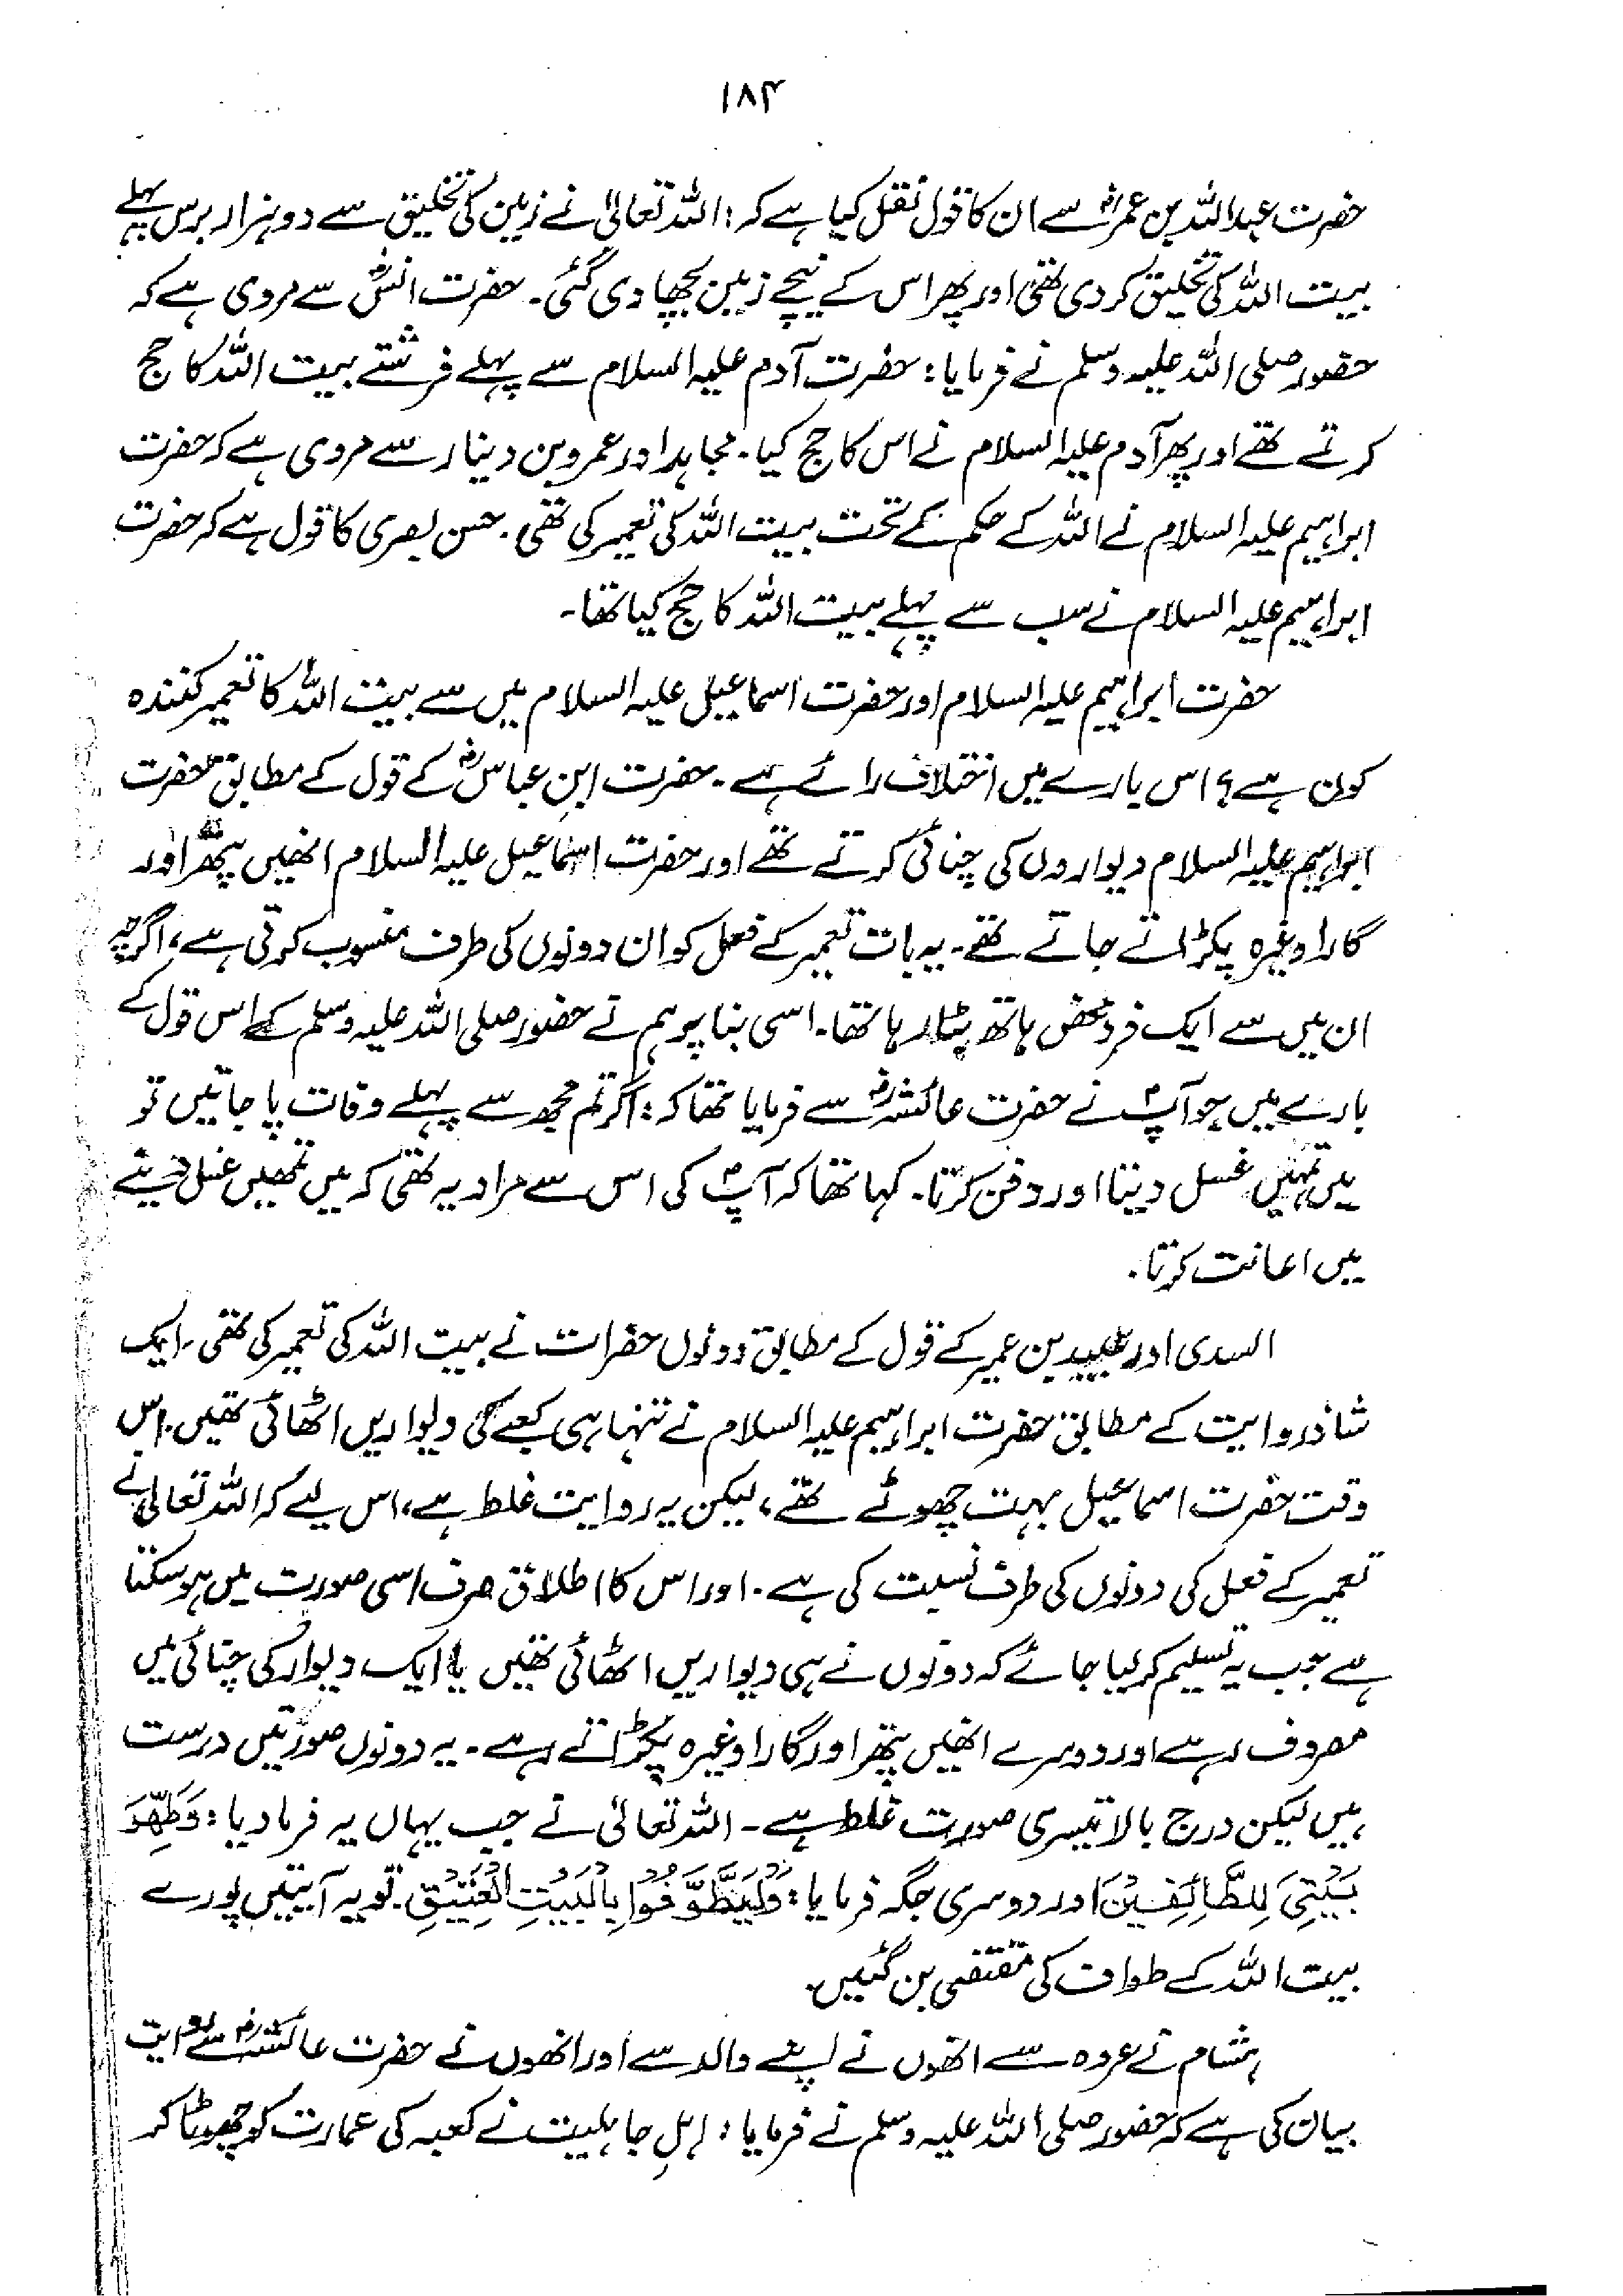 ۱۸۴
حضرت عبداللہ بن عمرؓ سے ان کا قول نقل کیا ہے کہ: اللہ تعالیٰ نے زمین کی تخلیق سے دو ہزار برس پہلے
بیت اللہ کی تخلیق کر دی تھی اور پھر اس کے نیچے زمین بچھا دی گئی۔ حضرت انسؓ سے مروی ہے کہ
حضور صلی اللہ علیہ وسلم نے فرمایا: حضرت آدم علیہ السلام سے پہلے فرشتے بیت اللہ کا حج
کرتے تھے اور پھر آدم علیہ السلام نے اس کا حج کیا۔ مجاہد اور عمرو بن دینار سے مروی ہے کہ حضرت
ابراہیم علیہ السلام نے اللہ کے حکم کے تحت بیت اللہ کی تعمیر کی تھی۔ حسن بصری کا قول ہے کہ حضرت
ابراہیم علیہ السلام نے سب سے پہلے بیت اللہ کا حج کیا تھا۔
حضرت ابراہیم علیہ السلام اور حضرت اسماعیل علیہ السلام میں سے بیت اللہ کا تعمیر کنندہ
کون ہے؟ اس بارے میں اختلاف رائے ہے۔ حضرت ابنِ عباسؓ کے قول کے مطابق حضرت
ابراہیم علیہ السلام دیواروں کی چنائی کرتے تھے اور حضرت اسماعیل علیہ السلام انھیں پتھر اور
گارا وغیرہ پکڑاتے جاتے تھے۔ یہ بات تعمیر کے فعل کو ان دونوں کی طرف منسوب کرتی ہے، اگرچہ
ان میں سے ایک فرد محض ہاتھ بٹا رہا تھا۔ اسی بنا پر ہم نے حضور صلی اللہ علیہ وسلم کے اس قول کے
بارے میں جو آپؐ نے حضرت عائشہؓ سے فرمایا تھا کہ: اگر تم مجھ سے پہلے وفات پا جاتیں تو
میں تمہیں غسل دیتا اور دفن کرتا۔ کہا تھا کہ آپؐ کی اس سے مراد یہ تھی کہ میں تمھیں غسل دینے
میں اعانت کرتا۔
السدی اور عبید بن عمیر کے قول کے مطابق دونوں حضرات نے بیت اللہ کی تعمیر کی تھی۔ ایک
شاذ روایت کے مطابق حضرت ابراہیم علیہ السلام نے تنہا ہی کعبے کی دیواریں اٹھائی تھیں۔ اس
وقت حضرت اسماعیل بہت چھوٹے تھے، لیکن یہ روایت غلط ہے، اس لیے کہ اللہ تعالیٰ نے
تعمیر کے فعل کی دونوں کی طرف نسبت کی ہے۔ اور اس کا اطلاق صرف اسی صورت میں ہو سکتا
ہے جب یہ تسلیم کر لیا جائے کہ دونوں نے ہی دیواریں اٹھائی تھیں یا ایک دیوار کی چنائی میں
مصروف رہے اور دوسرے انھیں پتھر اور گارا وغیرہ پکڑاتے رہے۔ یہ دونوں صورتیں درست
ہیں لیکن درج بالا تیسری صورت غلط ہے۔ اللہ تعالیٰ نے جب یہاں یہ فرما دیا: وَطَهِّرَ
بَيْتِيَ لِلطَّائِفِيْنَ اور دوسری جگہ فرمایا: وَلْيَطَّوَّفُوْا بِالْبَيْتِ الْعَتِيْقِ۔ تو یہ آیتیں پورے
بیت اللہ کے طواف کی مقتضی بن گئیں۔
ہشام نے عروہ سے انھوں نے اپنے والد سے اور انھوں نے حضرت عائشہؓ سے روایت
بیان کی ہے کہ حضور صلی اللہ علیہ وسلم نے فرمایا: اہلِ جاہلیت نے کعبہ کی عمارت کو چھوٹا کر